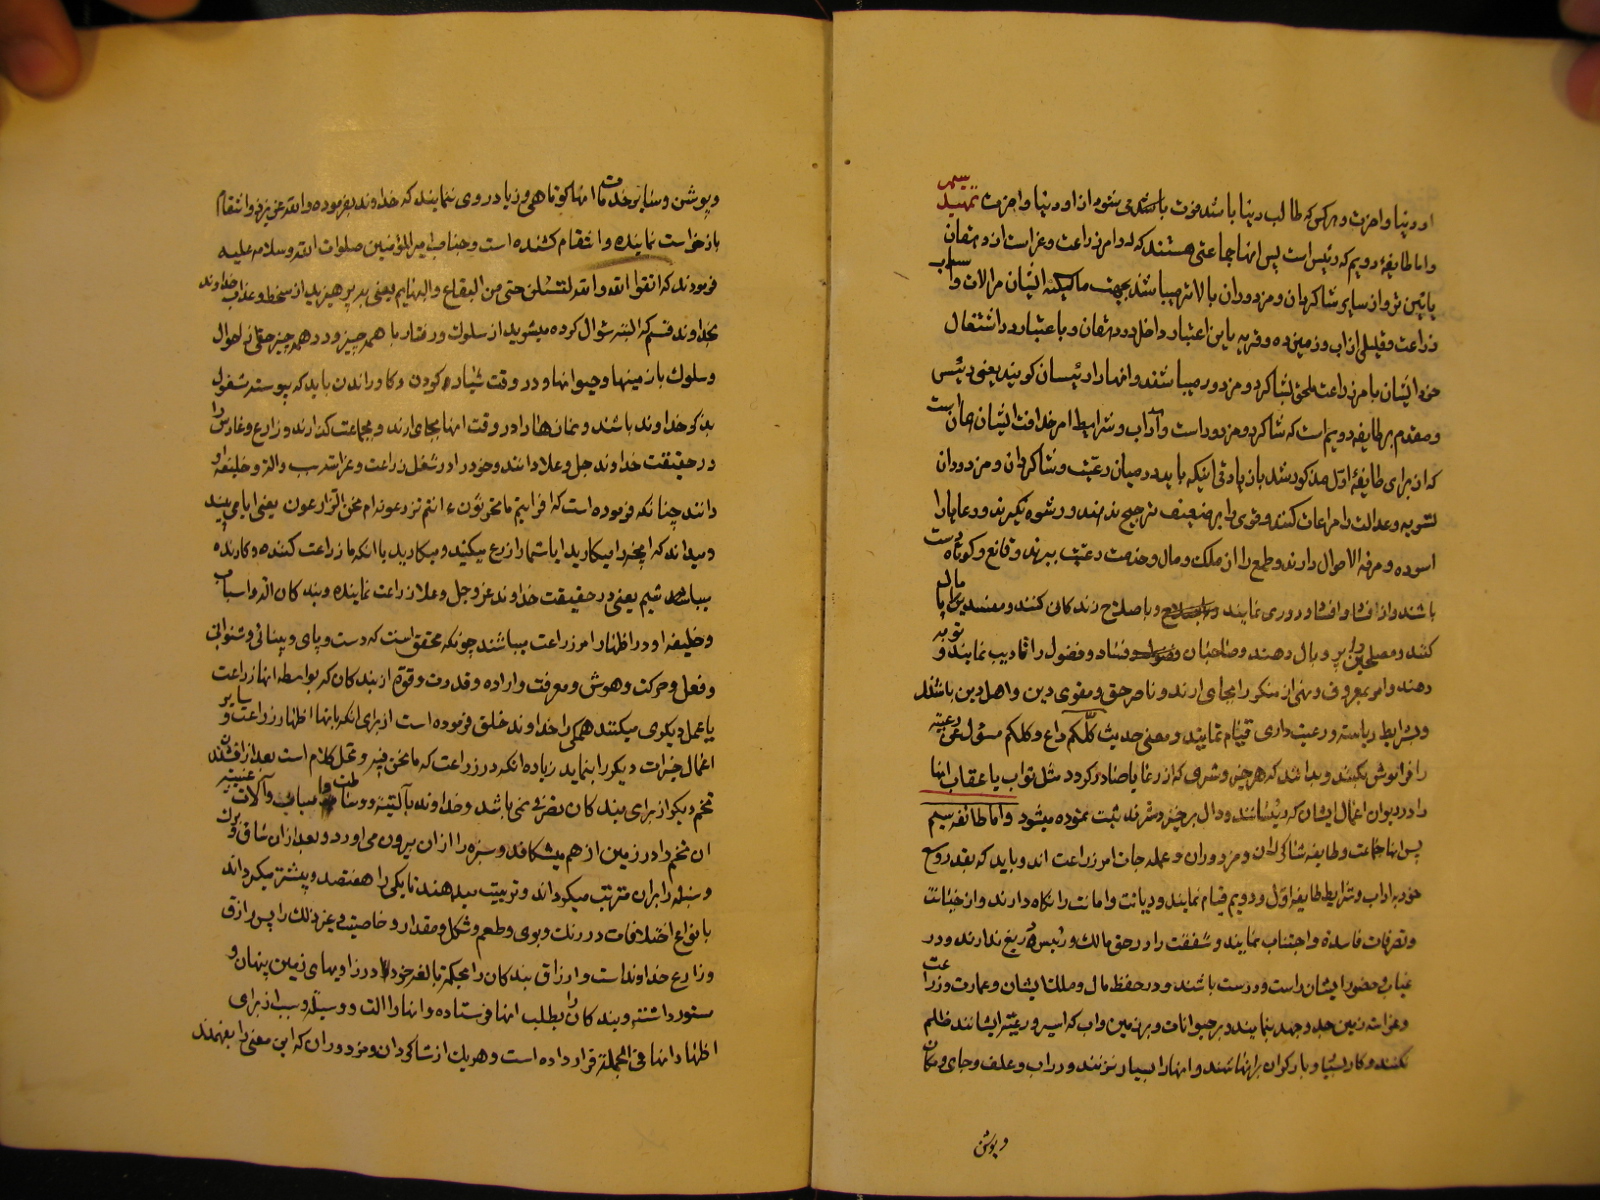 او دنیا و آخرت و هر کس که طالب دنیا باشد فوت می شود از او دنیا و آخرت تمهید سیم
و اما طایفهٔ دویم که رئیس است پس آنها جماعتی هستند که در امر زراعت و غراست از دهقان
پائین تر و از سایر شاگردان و مزدوران بالاتر میباشند بجهت مالکیت ایشان مر آلات و اسباب
زراعت و قلیلی از آب و زمین ده و قریه باین اعتبار داخل در دهقان و باعتبار در اشتغال
خود ایشان بامر زراعت ملحق بشاگرد و مزدور میباشند و آنها را رئیسان گویند یعنی رئیس
و مقدم بر طایفه دویم است که شاگرد و مزدور است و آداب و شرایط امر خلافت ایشان همان است
که از برای طایفهٔ اوّل مذکور شد بازیادتی اینکه باید در میان رعیّت و شاگردان و مزدوران
تسویه و عدالت را مراعات کنند و قوی را بر ضعیف ترجیح ندهند و رشوه نگیرند و رعایا را
آسوده و مرفه الاحوال دارند و طمع را از ملک و مال و خدمت رعیّت ببرند و قانع و کوتاه دست
باشند و از نمایند و با صلاح زندگان کنند و مفسدین را پامال
کنند و مصلحین را پر و بال دهند و صاحبان فساد و فضول را تأدیب نمایند و توبه
دهند و امر بمعروف و نهی از منکر را بجای آرند و ناصر حق و مقوی دین و اهل دین باشند
و شرایط ریاست و رعیت داری قیام نمایند و معنی حدیث کلّکم راع و کلکم مسؤل عن رعیته
را فراموش نکنند و بدانند که هر خیر و شری که از رعایا صادر گردد مثل ثواب یا عقاب آنها
را در دیوان اعمال ایشان که رئیسانند و دال بر خیر و شرند ثبت نموده میشود و اما طائفه سیم
پس آنها جماعت و طایفه شاگردان و مزدوران و عمله جات امر زراعت اند و باید که بقدر وسع
خود بآداب و شرایط طایفه اوّل و دویم قیام نمایند و دیانت و امانت را نگاه دارند و از خیانت
و تصرفات فاسده اجتناب نمایند و شفقت را در حق مالک و رئیس دریغ ندارند و در
غیاب و حضور ایشان راست و درست باشند و در حفظ مال و ملک ایشان و عمارت و زراعت
و غراست زمین جد و جهد نمایند و بر حیوانات و بر زمین و آب که اسیر و رعیت ایشانند ظلم
نکنند و کار بسیار و بار گران بر آنها ننهند و آنها را بسیار نزنند و در آب و علف و جای و مکان
و پوشش
و پوشش و سایر خدمات آنها کوتاهی و زیاد روی ننمایند که خداوند فرموده و الله عزیز ذو انتقام
بازخواست نماینده و انتقام کشنده است و جناب امیر المؤمنین صلوات الله و سلامه علیه
فرمودند که اتقوا الله و الله لتسئلن حتی من البقاع و البهایم یعنی بپرهیزید از سخط و عذاب خداوند
بخداوند قسم که البته سؤال کرده میشوید از سلوک و رفتار با همه چیز و در همه چیز حتی از احوال
و سلوک با زمینها و حیوانها و در وقت شیاره کردن و گاو راندن باید که پیوسته مشغول
بذکر خداوند باشند و نمازها را در وقت آنها بجای آرند و بجماعت گذارند و زارع و غارس را
در حقیقت خداوند جل و علا دانند و خود را در شغل زراعت و غراست سبب و آلة و خلیفه او
دانند چنانکه فرموده است که افرایتم ما تحرثون ءانتم تزرعونه ام نحن الزارعون یعنی آیا می بینید
و میدانید که آنچه را میکارید آیا شما زرع میکنید و میکارید یا آنکه ما زراعت کننده و کارنده
میباشیم یعنی در حقیقت خداوند عز و جل و علا زراعت نماینده و بندگان آلة و اسباب
و خلیفه او در اظهار امر زراعت میباشند چونکه محقق است که دست و پای و بینائی و شنوائی
و فعل و حرکت و هوش و معرفت و اراده و قدرت و قوة از بندگان که بواسطه آنها زراعت
یا عمل دیگری میکنند همگی را خداوند خلق فرموده است از برای آنکه بآنها اظهار زراعت و سایر
اعمال خیرات دیگر را بنماید زیاده آنکه در زراعت که ما نحن فیه و محل کلام است بعد از افشاندن
تخم دیگر از برای بندگان تصرفی نمی باشد و خداوند بآلتیة و وساطت و اسباب و آلات غیبیه
آن تخم را در زمین از هم میشکافد و سبزه را از آن بیرون می آورد و بعد از آن ساق و برگ
و سنبله را بر آن مترتب میگرداند و تربیت میدهند تا یکی را هفتصد و بیشتر میگرداند
با انواع اختلافات در رنگ و بوی و طعم و شکل و مقدار و خاصیت و غیر ذلک را پس رازق
و زارع خداوند است و ارزاق بندگان را بحکمة بالغه خود در زاویهای زمین پنهان و
مستور داشته و بندگان را بطلب آنها فرستاده و آنها را آلت و وسیله و سبب از برای
اظهار آنها فی الجملة قرار داده است و هر یک از شاگردان و مزدوران که این معنی را بفهمند